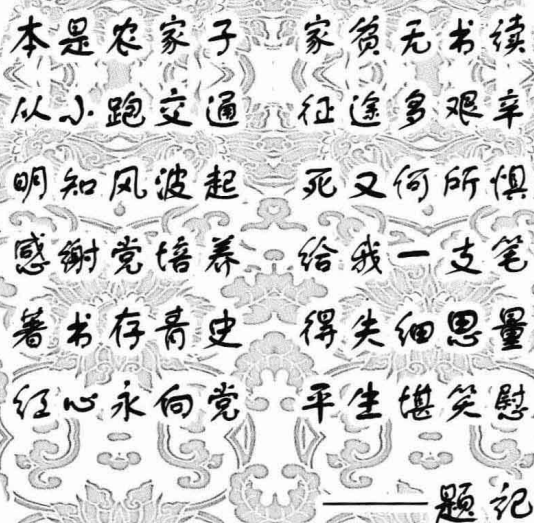 本是农家子 家贫无书读
从小跑交通 征途多艰辛
明知风波起 死又何所惧
感谢党培养 给我一支笔
著书存青史 得失细思量
红心永向党 平生堪笑慰
——题记